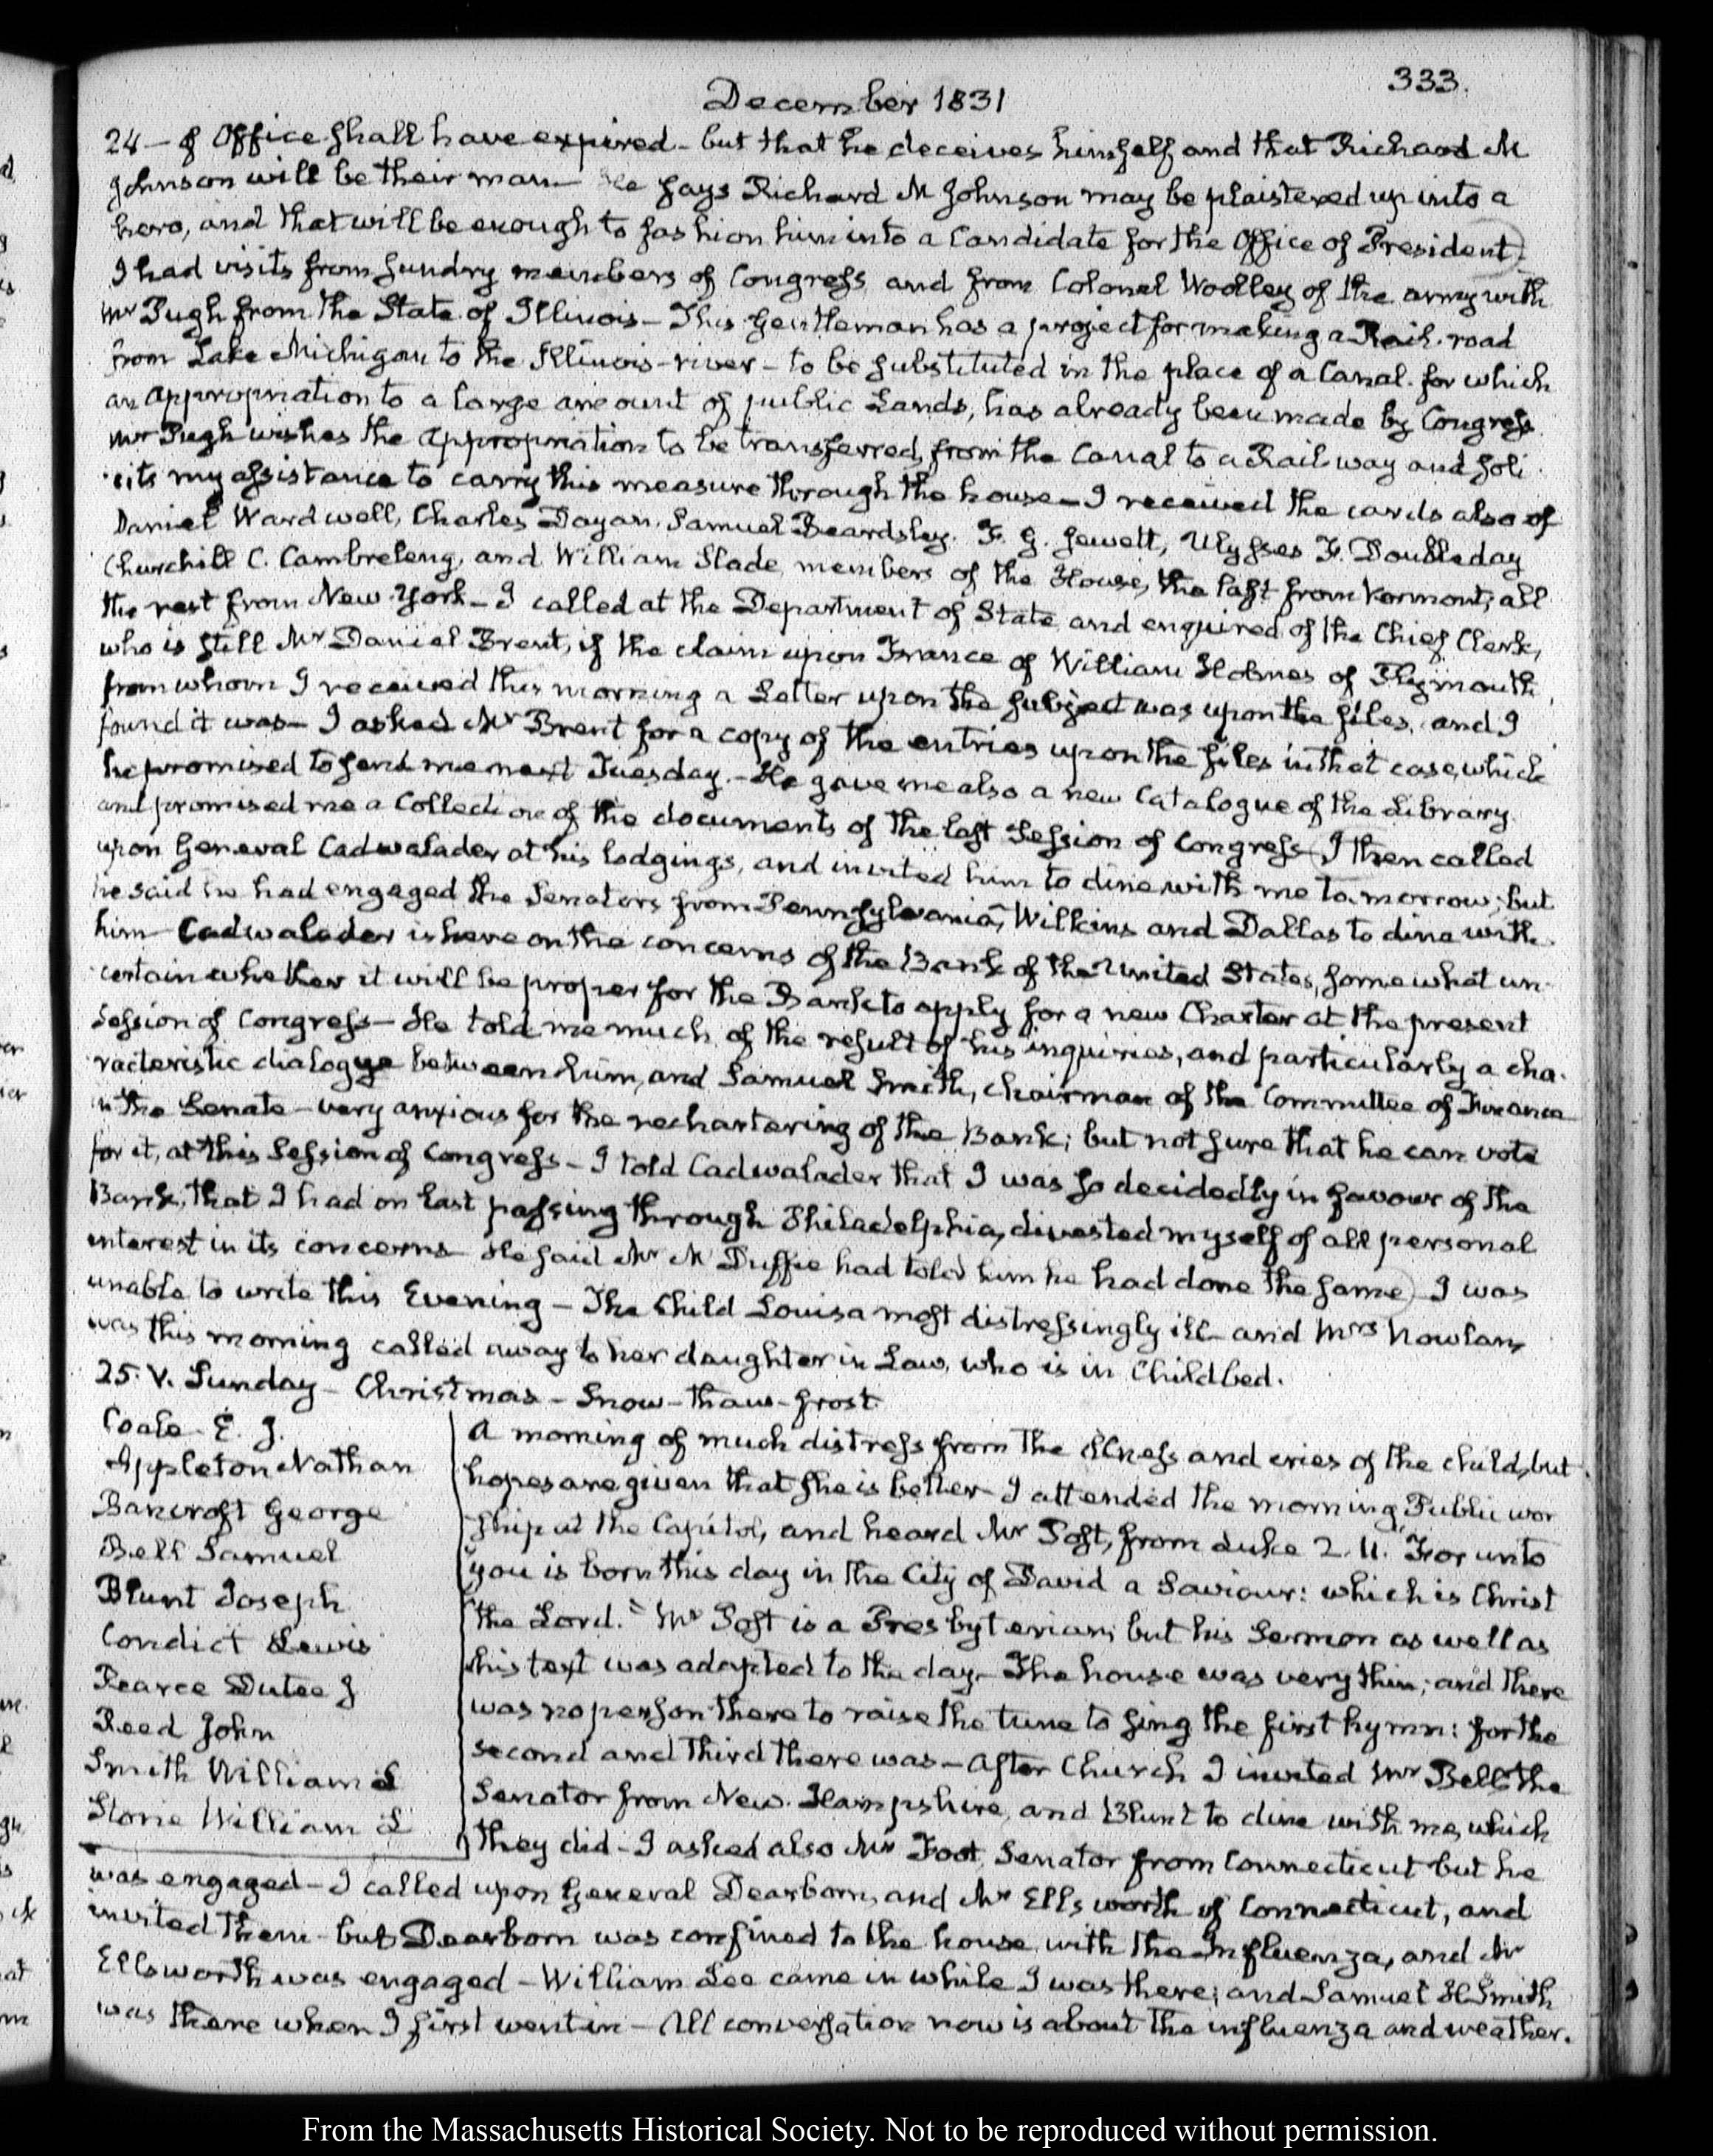 333.
December 1831
24 — of Office shall have expired — but that he deceives himself and that Richard M
Johnson will be their man — He says Richard M Johnson may be plaistered up into a
hero, and that will be enough to fashion him into a Candidate for the Office of President)
I had visits from sundry members of Congress, and from Colonel Woolley of the army with
Mr Pugh from the State of Illinois — This Gentleman has a project for making a Rail-road
from Lake Michigan to the Illinois-river — to be substituted in the place of a Canal. for which
an appropriation to a large amount of public Lands, has already been made by Congress
Mr Pugh wishes the appropriation to be transferred, from the Canal to a Railway and soli
cits my assistance to carry this measure through the house — I received the cards also of
Daniel Wardwell, Charles Dayan. Samuel Beardsley. F. G. Jewett, Ulysses F. Doubleday
Churchill C. Cambreleng, and William Slade, members of the House, the last from Vermont; all
the rest from New-York — I called at the Department of State and enquired of the Chief Clerk,
who is still Mr Daniel Brent, if the claim upon France of William Holmes of Plymouth
from whom I received this morning a Letter upon the subject was upon the files, and I
found it was — I asked Mr Brent for a copy of the entries upon the files in that case, which
he promised to send me next Tuesday. — He gave me also a new Catalogue of the Library
and promised me a Collection of the documents of the last Session of Congress — I then called
upon General Cadwalader at his lodgings, and invited him to dine with me to-morrow; but
he said he had engaged the Senators from Pennsylvania, Wilkins and Dallas to dine with
him — Cadwalader is here on the concerns of the Bank of the United States, somewhat un-
certain whether it will be proper for the Bank to apply for a new Charter at the present
Session of Congress — He told me much of the result of his inquiries, and particularly a cha-
racteristic dialogue between him, and Samuel Smith, Chairman of the Committee of Finance
in the Senate — very anxious for the rechartering of the Bank; but not sure that he can vote
for it, at this Session of Congress — I told Cadwalader that I was so decidedly in favour of the
Bank, that I had on last passing through Philadelphia, divested myself of all personal
interest in its concerns — He said Mr McDuffie had told him he had done the same) I was
unable to write this Evening — The Child Louisa most distressingly ill — and Mrs Nowlan,
was this morning called away to her daughter in Law, who is in Childbed.
25. V. Sunday — Christmas — Snow — thaw — frost.
Coale E. J.
Appleton Nathan
Bancroft George
Bell Samuel
Blunt Joseph
Condict Lewis
Pearce Dutee J
Reed John
Smith William L
Stone William L
A morning of much distress from the illness and cries of the child, but
hopes are given that she is better — I attended the morning Public wor
ship at the Capitol, and heard Mr Post, from Luke 2. 11. "For unto
"you is born this day in the City of David a Saviour: which is Christ
"the Lord." Mr Post is a Presbyterian; but his Sermon as well as
his text was adapted to the day. The house was very thin; and there
was no person there to raise the tune to sing the first hymn: for the
second and third there was — After Church I invited Mr Bell the
Senator from New-Hampshire, and Blunt to dine with me, which
they did — I asked also Mr Foot, Senator from Connecticut but he
was engaged — I called upon General Dearborn, and Mr Ellsworth of Connecticut, and
invited them — but Dearborn was confined to the house with the Influenza, and Mr
Ellsworth was engaged — William Lee came in while I was there; and Samuel H Smith
was there when I first went in — All conversation now is about the influenza and weather.
From the Massachusetts Historical Society. Not to be reproduced without permission.